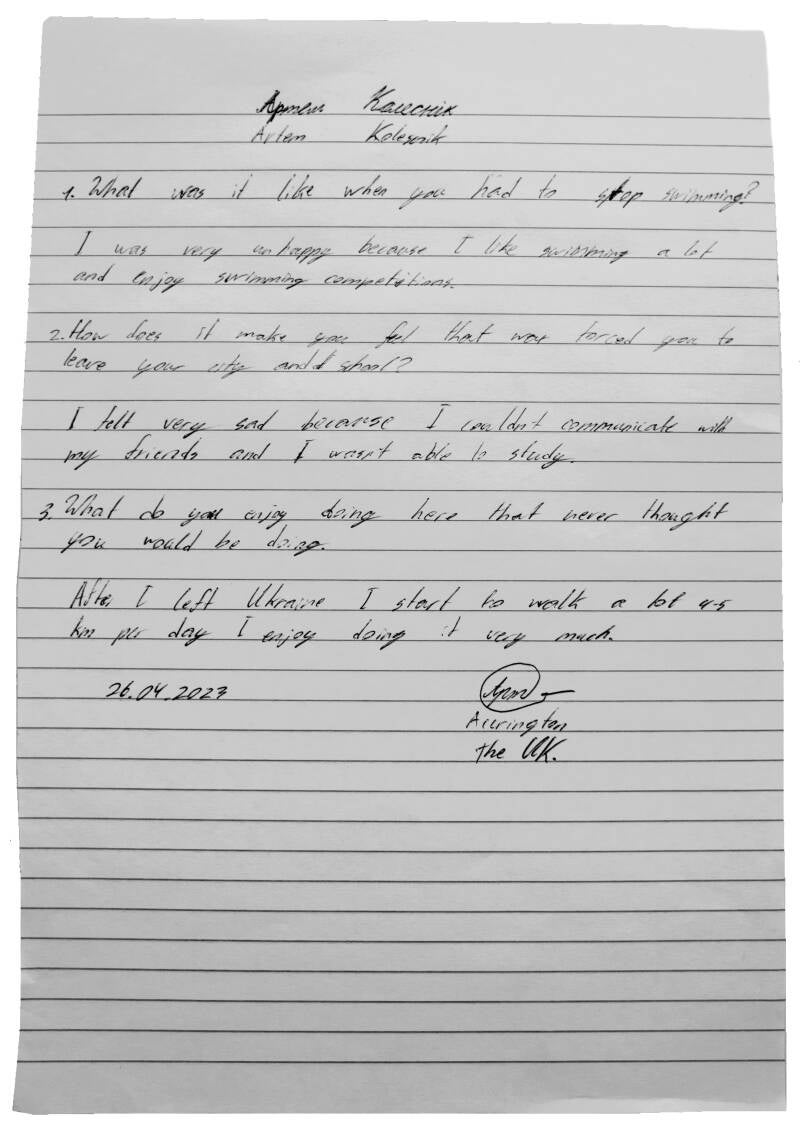 Артем Колеснік
Artem Kolesnik
1. What was it like when you had to stop swimming?
I was very unhappy because I like swimming a lot
and enjoy swimming competitions.
2. How does it make you feel that war forced you to
leave your city and school?
I felt very sad because I couldn't communicate with
my friends and I wasn't able to study.
3. What do you enjoy doing here that never thought
you would be doing.
After I left Ukraine I start to walk a lot 4-5
km per day I enjoy doing it very much.
26.04.2023
Accrington
the UK.